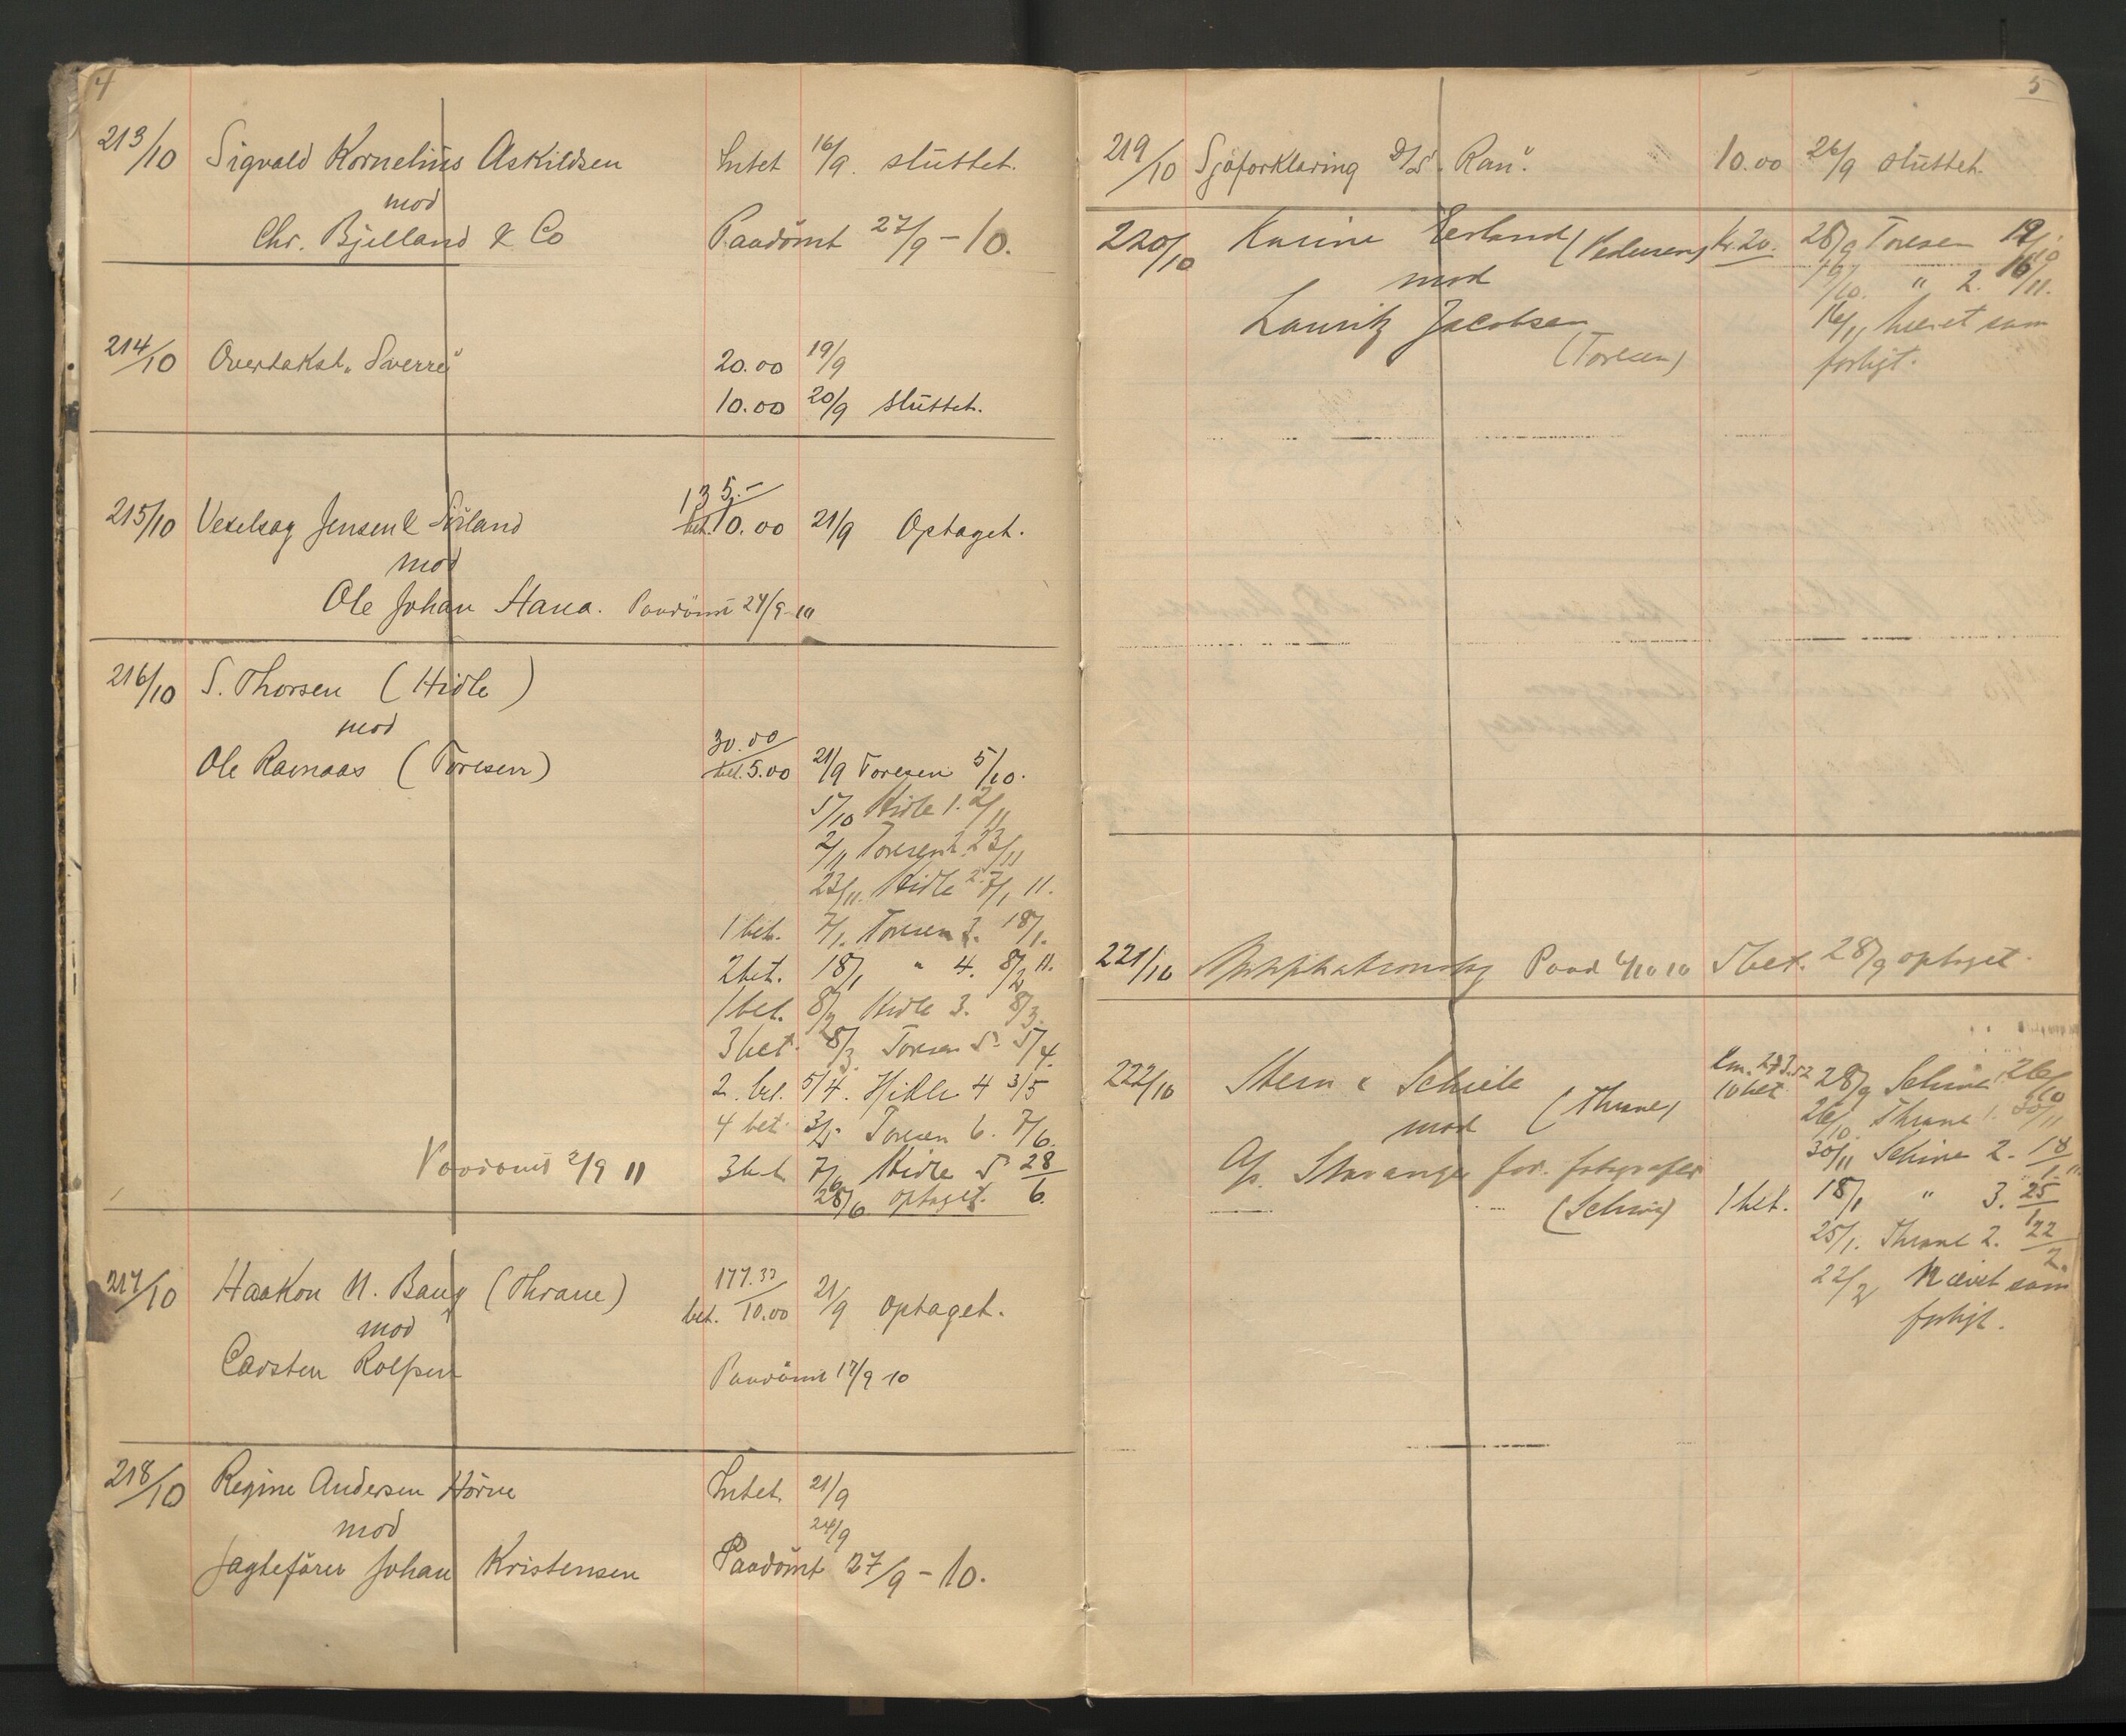 4
213/10 Sigvald Kornelius Askildsen Intet 16/9. sluttet.
mod
Chr. Bjelland & Co Paadömt 27/9 - 10.
214/10 Overtakst „Sverre" 20.00 19/9
10.00 20/9 sluttet.
135.-
215/10 Vexelsag Jensen & bet. 10.00 21/9 Optaget.
mod
Ole Johan Hana. Paadömt 24/9-10
216/10 S. Thorsen (Hidle)
mod
30.00
Ole Ramaas (Toresen) bet. 5.00 21/9 Toresen 5/10.
5/10 Hidle 1. 2/11
2/11 Toresen 2. 23/11
23/11. Hidle 2. 7/1 11.
1 bet. 7/1. Toresen 3. 18/1.
2 bet. 18/1 " 4. 8/2 11.
1 bet. 8/2 Hidle 3. 8/3.
3 bet. 8/3. Toresen 5. 5/4.
2. bet. 5/4. Hidle 4 3/5
4 bet. 3/5. Toresen 6. 7/6.
Paadömt 2/9 11 3 bet 7/6 Hidle 5 28/6.
28/6. optaget.
217/10 Haakon N. Baug (Thrane) 177.33
bet. 10.00 21/9 Optaget.
mod
Carsten Rolfsen Paadömt 17/9 10
218/10 Regine Andersen Hörve Intet. 21/9
mod 24/9
Jagtefører Johan Kristensen Paadömt 27/9 - 10.
5
219/10 Sjøforklaring D/S „Ran". 10.00 26/9 sluttet.
220/10 Karine (Pedersen) kr. 20. 28/9 Toresen 19/10
mod 19/10. " 2. 16/11.
Lauritz Jacobsen 16/11 hævet som
(Toresen) forligt.
221/10 Paad 4/10 10 5 bet. 28/9 optaget.
222/10 Stern & Schiele 10 bet. 28/9 Schiøs 26/10
mod (Thrane) 26/10. Thrane 1. 30/11
A/s. Stavanger for. fotografer 30/11 Schiøs 2. 18/1. 11
(Schiøs) 1 bet. 18/1 " 3. 25/1
25/1. Thrane 2. 22/2.
22/2 Hævet som
forligt.